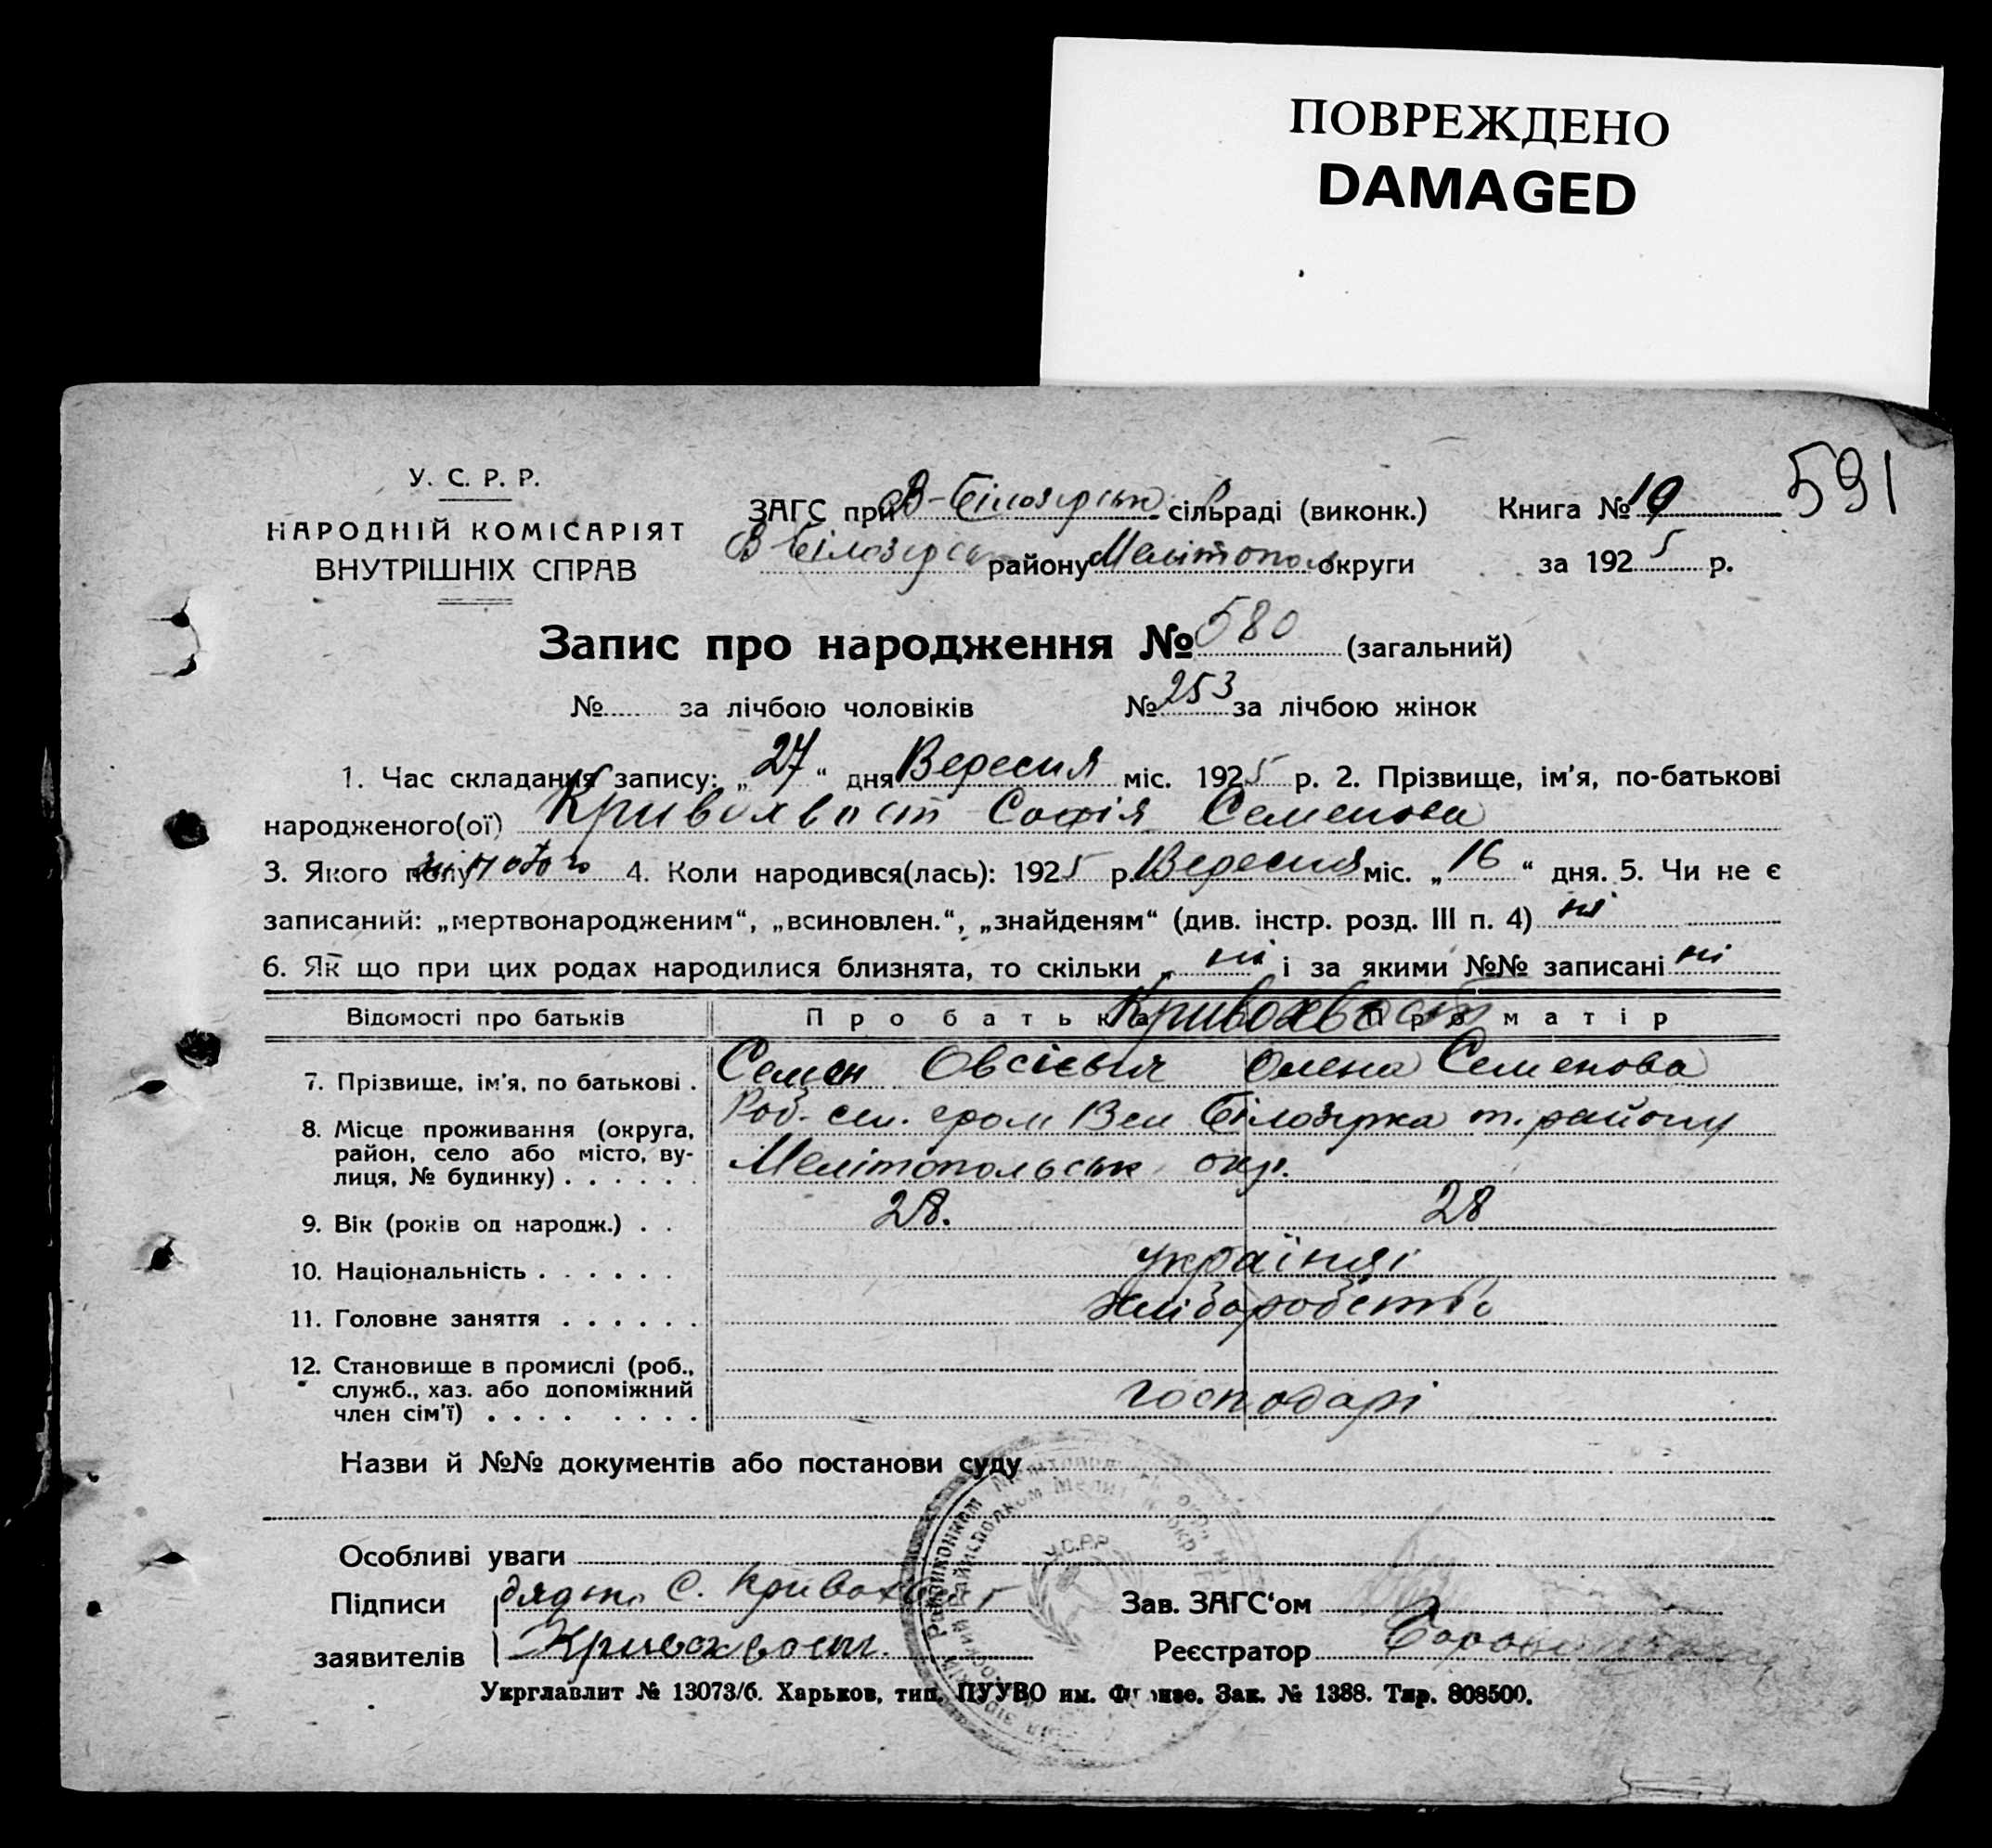 ПОВРЕЖДЕНО
DAMAGED
591
У. С. Р. Р.
НАРОДНІЙ КОМІСАРІЯТ
ВНУТРІШНІХ СПРАВ
ЗАГС при В-Білозірськ сільраді (виконк.) Книга № 19
В-Білозірськ району Мелітопол округи за 1925 р.
Запис про народження № 580 (загальний)
№ за лічбою чоловіків № 253 за лічбою жінок
1. Час складання запису: „27“ дня Вересня міс. 1925 р. 2. Прізвище, ім'я, по-батькові
народженого(ої) Кривохвост Софія Семенова
3. Якого полу жіночого 4. Коли народився(лась): 1925 р. Вересня міс. „16“ дня. 5. Чи не є
записаний: „мертвонародженим“, „всиновлен.“, „знайденям“ (див. інстр. розд. III п. 4) ні
6. Як що при цих родах народилися близнята, то скільки „ ні і за якими №№ записані ні
Відомості про батьків Про батька Кривохвост Про матір
7. Прізвище, ім'я, по батькові . Семен Овсієвич Олена Семенова
8. Місце проживання (округа, район, село або місто, вулиця, № будинку) . . . . . . Білозірка т. району
Мелітопольськ окр.
9. Вік (років од народж.) . . 28. 28
10. Національність . . . . . . українці
11. Головне заняття . . . . . . хліборобство
12. Становище в промислі (роб., служб., хаз. або допоміжний член сім'ї) . . . . . . . . господарі
Назви й №№ документів або постанови суду
Особливі уваги
Підписи С. Кривохвост Зав. ЗАГС'ом
заявителів Кривохвост. Реєстратор
У.С.Р.Р
Укрглавлит № 13073/6. Харьков, тип. ПУУВО им. Фрунзе. Зак. № 1388. Тир. 808500.